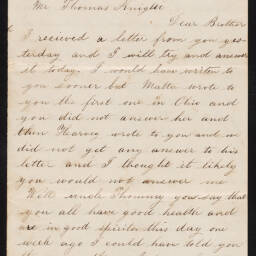 Mr Thomas Knight
Dear Brother
I recieved a letter from you yes-
terday and I will try and answer
it today. I would have writen to
you sooner but Matta wrote to
you the first one in Ohio and
you did not answer her and
then Harvey wrote to you and we
did not get any answer to his
letter and I thought it likely
you would not answer me
Well uncle Thommy you say that
you all have good health and
are in good spirits this day one
week ago I could have told you